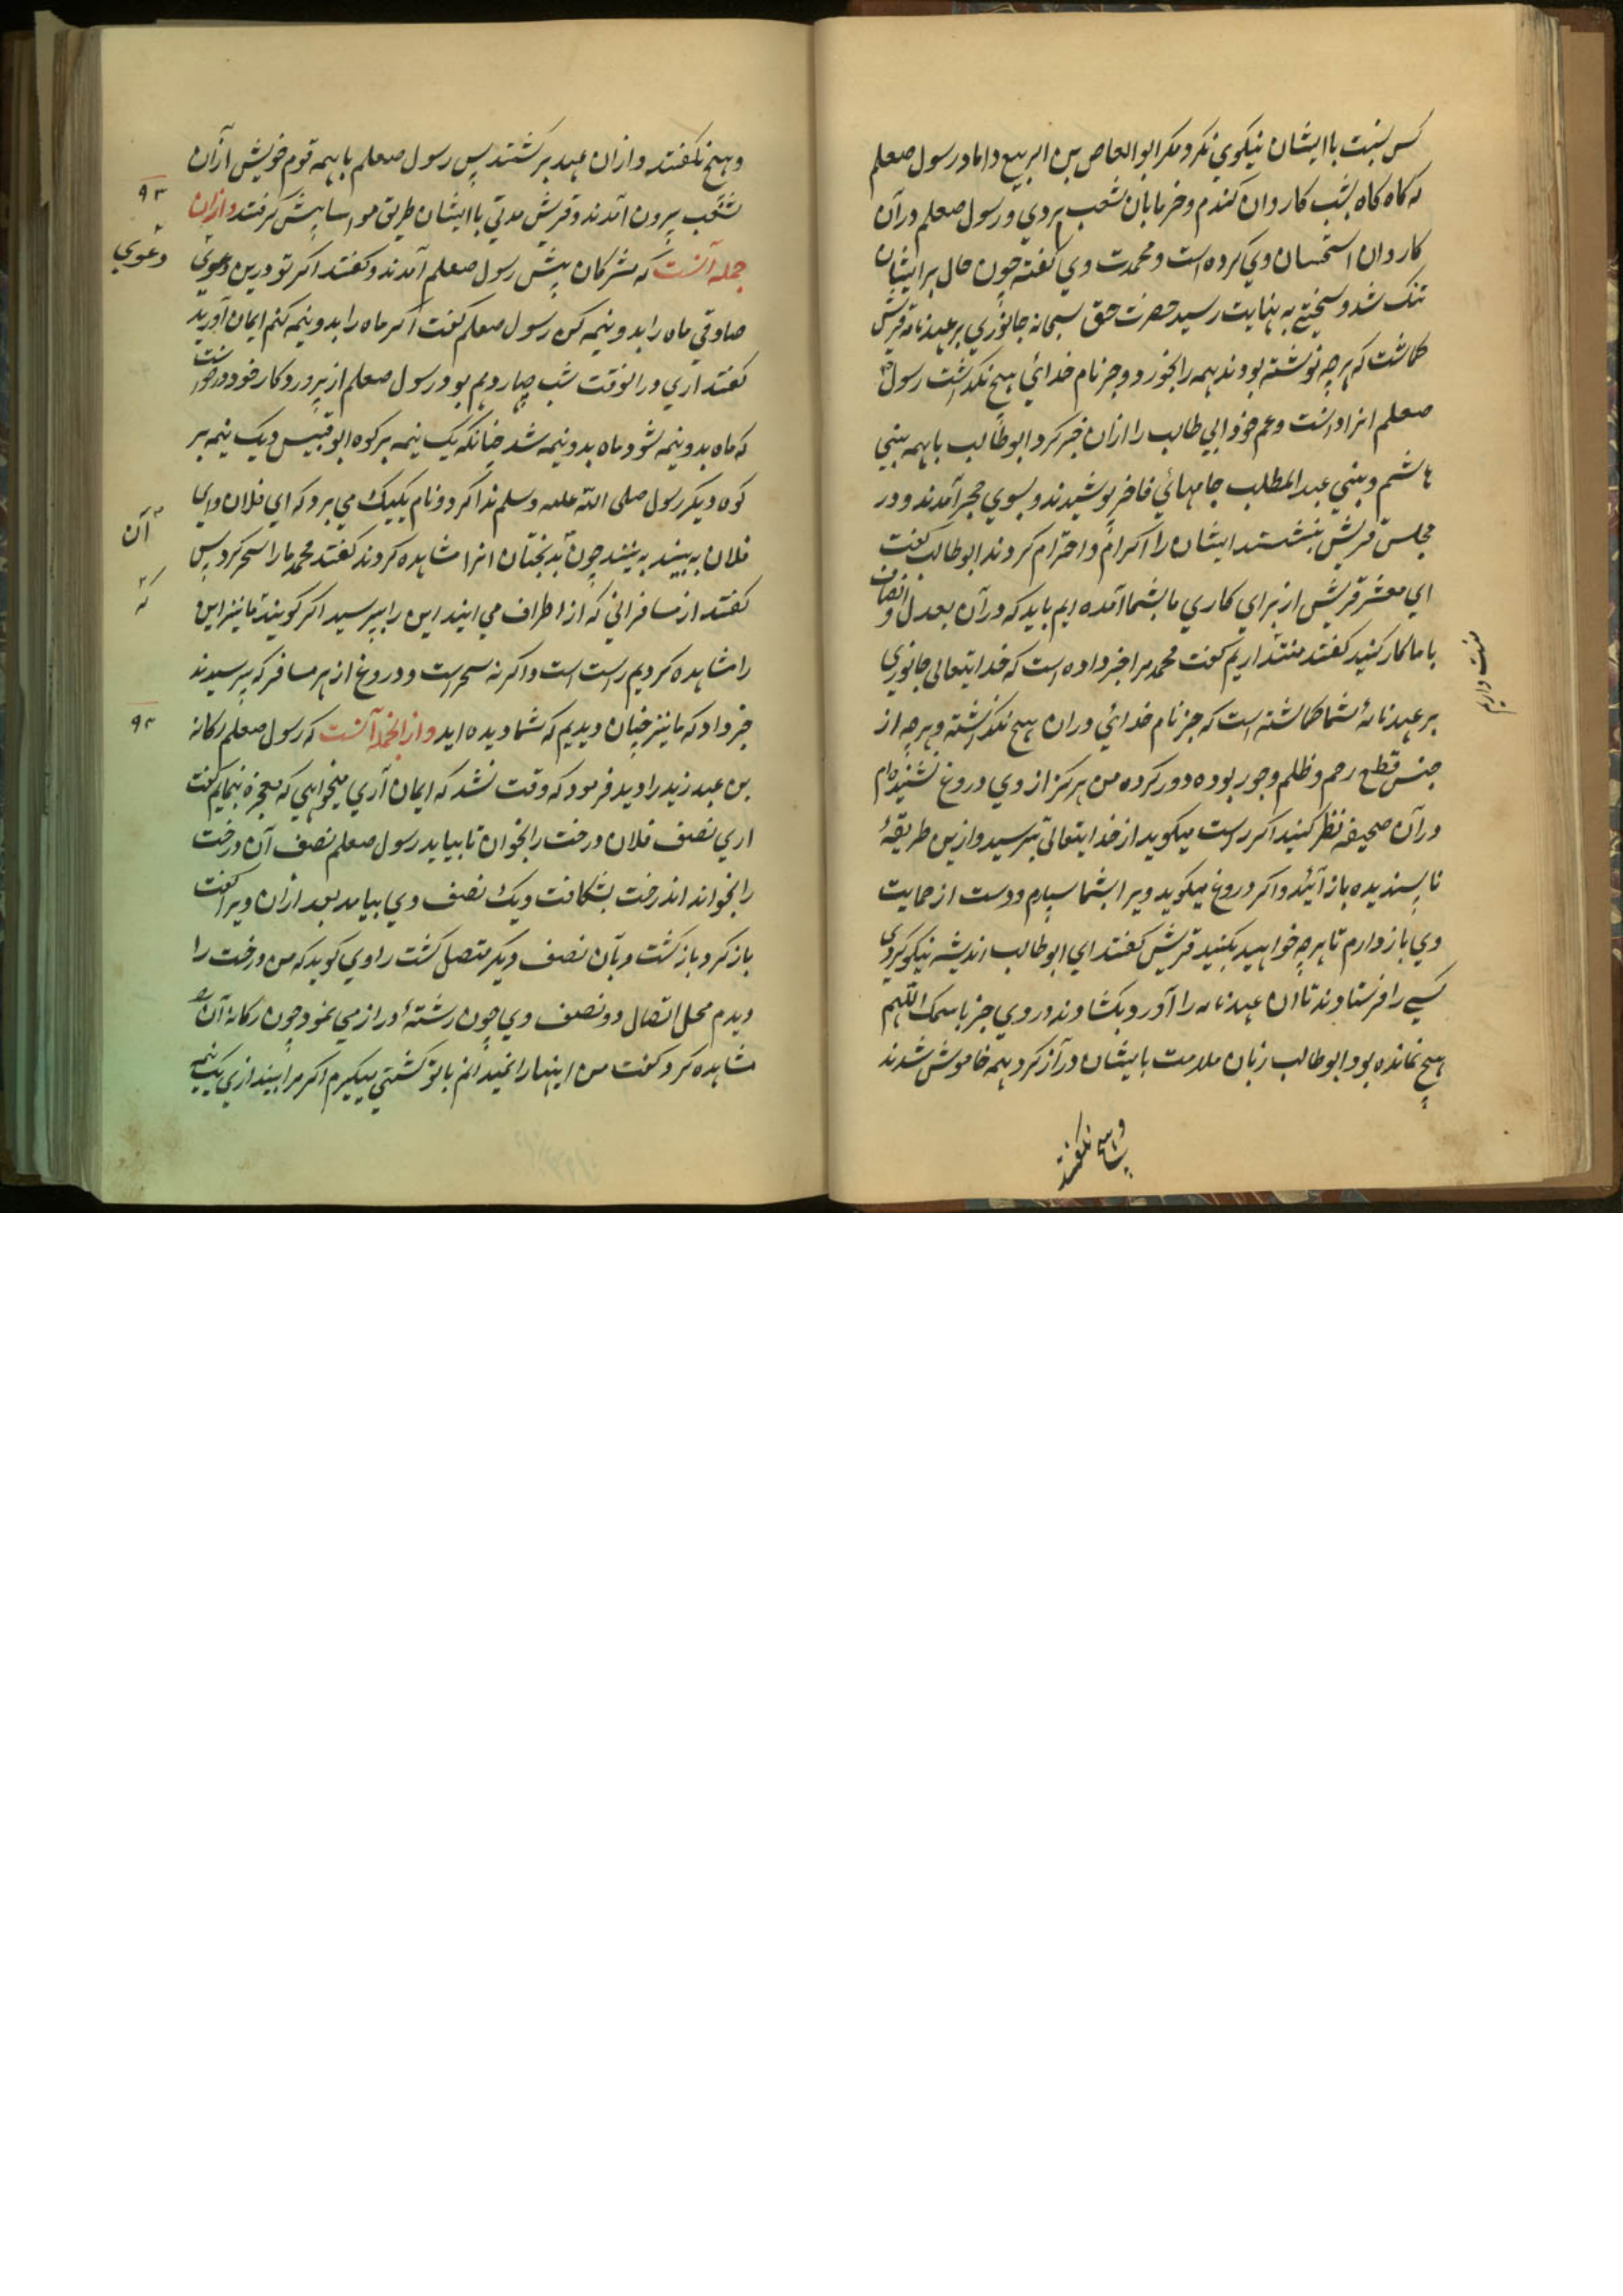 کس نسبت با ایشان نیکوی نکرد مکر ابو العاص بن الربیع داماد رسول صعلم
که کاه کاه بشب کاروان کندم و خرما بان شعب بردی و رسول صعلم در آن
کاروان استحسان وی کرده است و محمدت وی کفته چون حال بر ایشان
تنک شد و سختی به نهایت رسید حضرت حق سبحانه جانوری بر عهدنامه قریش
کماشت که هرچه نوشته بودند همه را بخورد و جز نام خدائی هیچ نکذاشت رسول
صعلم انرا دانست و عم خود ابی طالب را ازان خبر کرد ابو طالب با همه بنی
هاشم و بنی عبد المطلب جامهائی فاخر پوشیدند و بسوی حجر آمدند و در
مجلس قریش بنشستند ایشان را اکرام و احترام کردند ابو طالب کفت
ای معشر قریش از برای کاری ما بشما آمده ایم باید که در آن بعدل و انصاف
با ما کار کنید کفتند منت داریم کفت محمد مرا خبر داده است که خدایتعالی جانوری
منت داریم
بر عهدنامهٔ شما کماشته است که جز نام خدائی دران هیچ نکذاشته و هرچه از
جنس قطع رحم و ظلم و جور بوده دور کرده من هرکز از وی دروغ نشنیده ام
در آن صحیفه نظر کنید اکر راست میکوید از خدایتعالی بترسید و ازین طریقهٔ
ناپسندیده باز آئید و اکر دروغ میکوید ویرا بشما سپارم و دست از حمایت
وی باز دارم تا هرچه خواهید بکنید قریش کفتند ای ابو طالب اندیشه نیکو کردی
کسی را فرستادند تا ان عهدنامه را آورد بکشادند در وی جز باسمک اللهم
هیچ نمانده بود ابو طالب زبان ملامت بایشان دراز کرد همه خاموش شدند
و هیچ نکفتند
و هیچ نکفتند و ازان عهد برکشتند پس رسول صعلم با همه قوم خویش ازان
شعب بیرون آمدند و قریش مدتی با ایشان طریق مواسا پیش کرفتند و ازان
۹۳
جمله آنست که مشرکان پیش رسول صعلم آمدند و کفتند اکر تو درین دعوی
دعوی
صادقی ماه را بدو نیمه کن رسول صعلم کفت اکر ماه را بدو نیمه کنم ایمان آورید
کفتند آری و در انوقت شب چهاردهم بود رسول صعلم از پروردکار خود درخواست
که ماه بدو نیمه شود ماه بدو نیمه شد چنانکه یک نیمه بر کوه ابو قبیس و یک نیمه بر
کوه دیکر رسول صلی الله علیه وسلم ندا کرد و نام یکیک می برد که ای فلان و ای
فلان به بینید به بینید چون آن بدبختان انرا مشاهده کردند کفتند محمد ما را سحر کرد پس
آن
کفتند از مسافرانی که از اطراف می ایند این را بپرسید اکر کویند که ما نیز این
که
را مشاهده کردیم راست است و اکر نه سحر است و دروغ از هر مسافر که پرسیدند
خبر داد که ما نیز چنان دیدیم که شما دیده اید و از انجمله آنست که رسول صعلم رکانه
۹۴
بن عبد زید را دید فرمود که وقت نشد که ایمان آری میخواهی که معجزه بنمایم کفت
اری نصف فلان درخت را بخوان تا بیاید رسول صعلم نصف آن درخت
را بخواند اندرخت بشکافت و یک نصف وی بیامد بعد ازان ویرا کفت
باز کرد باز کشت و بآن نصف دیکر متصل کشت راوی کوید که من درخت را
دیدم محل اتصال دو نصف وی چون رشتهٔ دراز می نمود چون رکانه آنرا
مشاهده کرد کفت من اینها را نمیدانم با تو کشتی میکیرم اکر مرا بیندازی یک نیمه